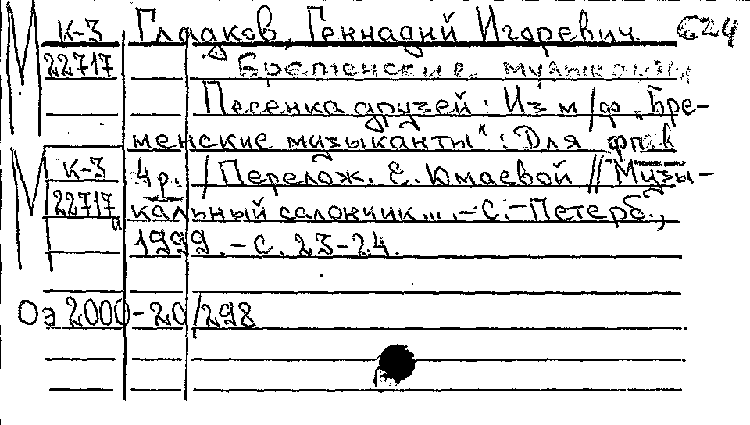 М К-3 Гладков, Геннадий Игоревич. С24
22717 Бременские музыканты
Песенка друзей: Из м/ф „Бре-
менские музыканты": Для фп. в
М К-3 4 р. / Перелож. Е. Юмаевой // "Музы-
22717 кальный салончик... .-С.-Петерб.,
1999. - С. 23-24.
Оэ 2000-20/298